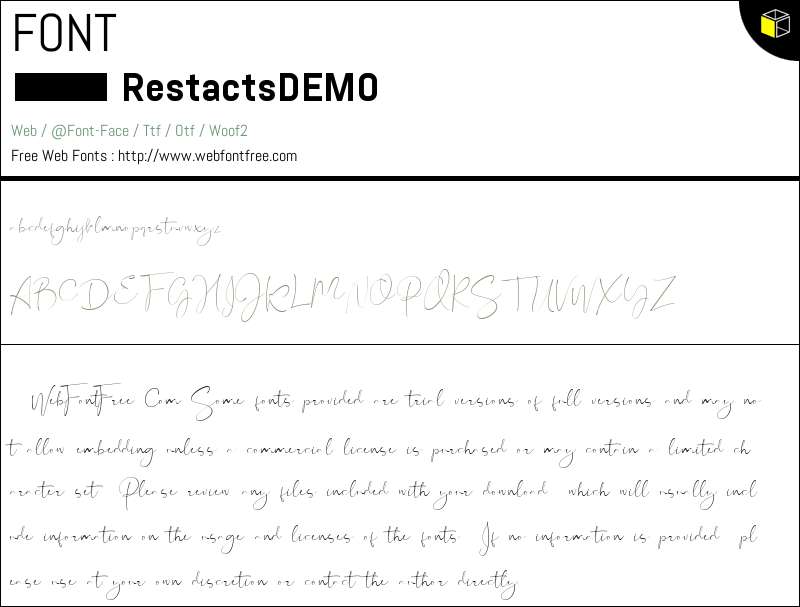 FONT
RestactsDEMO
Web / @Font-Face / Ttf / Otf / Woof2
Free Web Fonts : http://www.webfontfree.com
abcdefghijklmnopqrstuvwxyz
ABCDEFGHIJKLMNOPQRSTUVWXYZ
WebFontFree Com Some fonts provided are trial versions of full versions and may no
t allow embedding unless a commercial license is purchased or may contain a limited ch
aracter set Please review any files included with your download which will usually incl
ude information on the usage and licenses of the fonts If no information is provided pl
ease use at your own discretion or contact the author directly